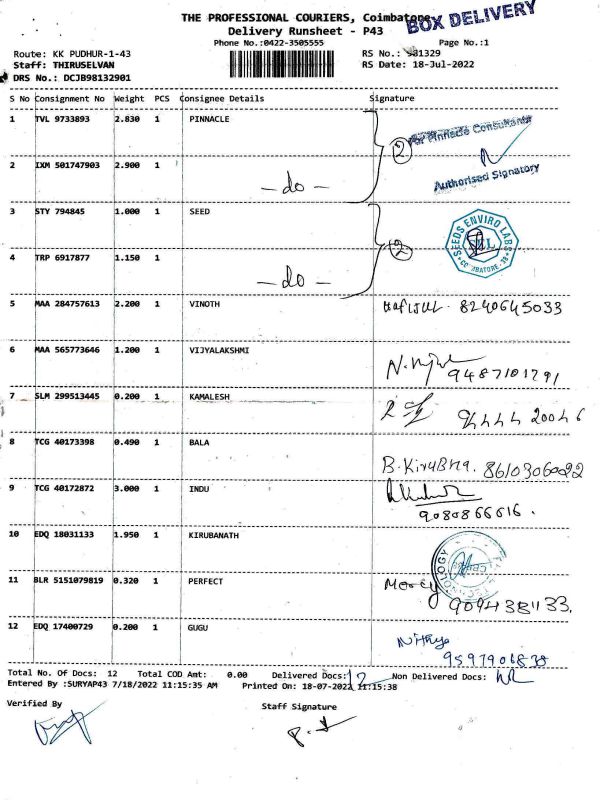 THE PROFESSIONAL COURIERS, Coimbatore
BOX DELIVERY
Delivery Runsheet - P43
Phone No.:0422-3505555
Page No.:1
Route: KK PUDHUR-1-43
RS No.: 981329
Staff: THIRUSELVAN
RS Date: 18-Jul-2022
DRS No.: DCJB98132901
S No Consignment No Weight PCS Consignee Details Signature
1 TVL 9733893 2.830 1 PINNACLE
For Pinnacle Consultants
2
2 IXM 501747903 2.900 1
- do -
Authorised Signatory
3 STY 794845 1.000 1 SEED
SEEDS ENVIRO LABS
SEL
COIMBATORE - 38
2
4 TRP 6917877 1.150 1
- do -
5 MAA 284757613 2.200 1 VINOTH 8240645033
6 MAA 565773646 1.200 1 VIJYALAKSHMI
9487101791
7 SLM 299513445 0.200 1 KAMALESH
94444 20046
8 TCG 40173398 0.490 1 BALA
B. Kirubha. 8610306022
9 TCG 40172872 3.000 1 INDU
9080866616.
10 EDQ 18031133 1.950 1 KIRUBANATH
11 BLR 5151079819 0.320 1 PERFECT
Mercy
9094381133.
12 EDQ 17400729 0.200 1 GUGU
Nithya
9597906838
Total No. Of Docs: 12 Total COD Amt: 0.00 Delivered Docs: 12 Non Delivered Docs: NR
Entered By :SURYAP43 7/18/2022 11:15:35 AM Printed On: 18-07-2022 11:15:38
Verified By
Staff Signature